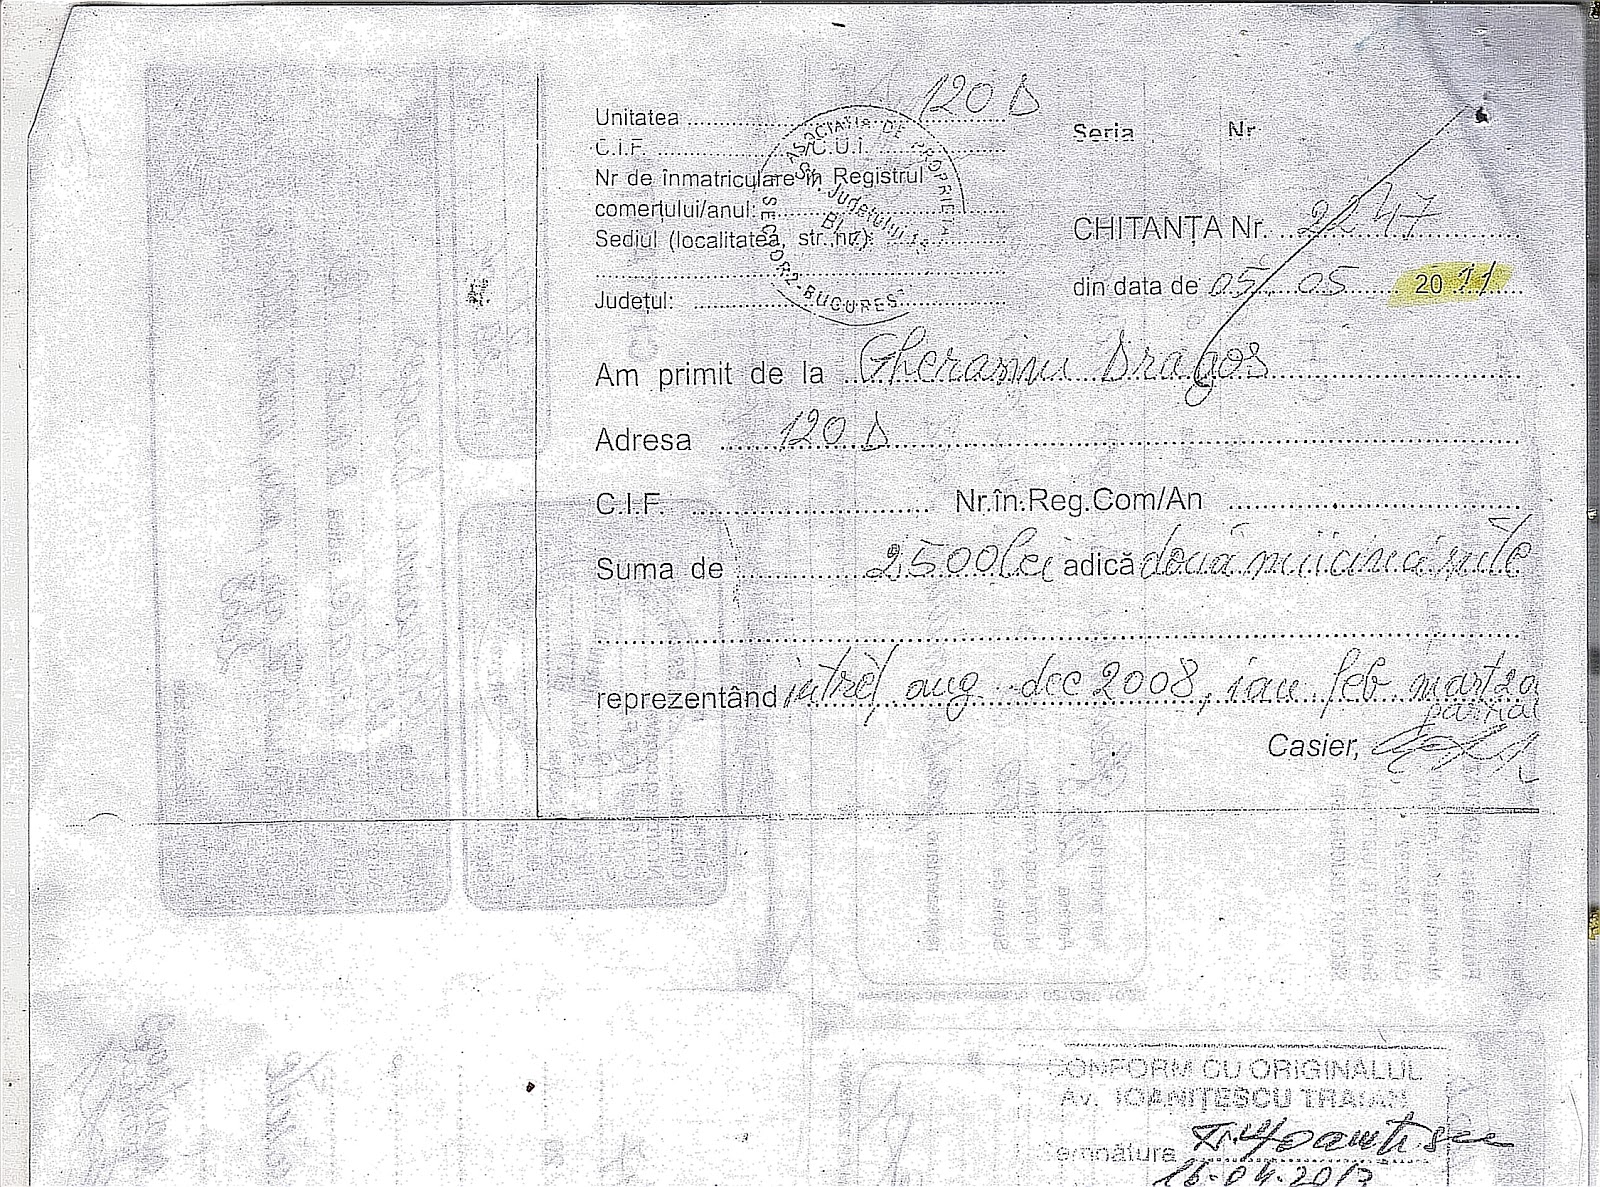 Unitatea 120 D
C.I.F. C.U.I.
Nr de înmatriculare în Registrul
comerțului/anul:
Sediul (localitatea, str. nr.):
Județul:
ASOCIATIA DE PROPRIETA
SECTOR 2 - BUCUREȘ
Str. Judetului
Bl.
Seria Nr
CHITANȚA Nr. 2247
din data de 05 05 2011
Am primit de la Dragos
Adresa 120 D
C.I.F. Nr.în.Reg.Com/An
Suma de 2500 lei adică două mii cinci sute
reprezentând aug dec 2008, ian feb mart 20
partial
Casier,
CONFORM CU ORIGINALUL
Av. IOANIȚESCU TRAIAN
Semnătura
16.04.2013